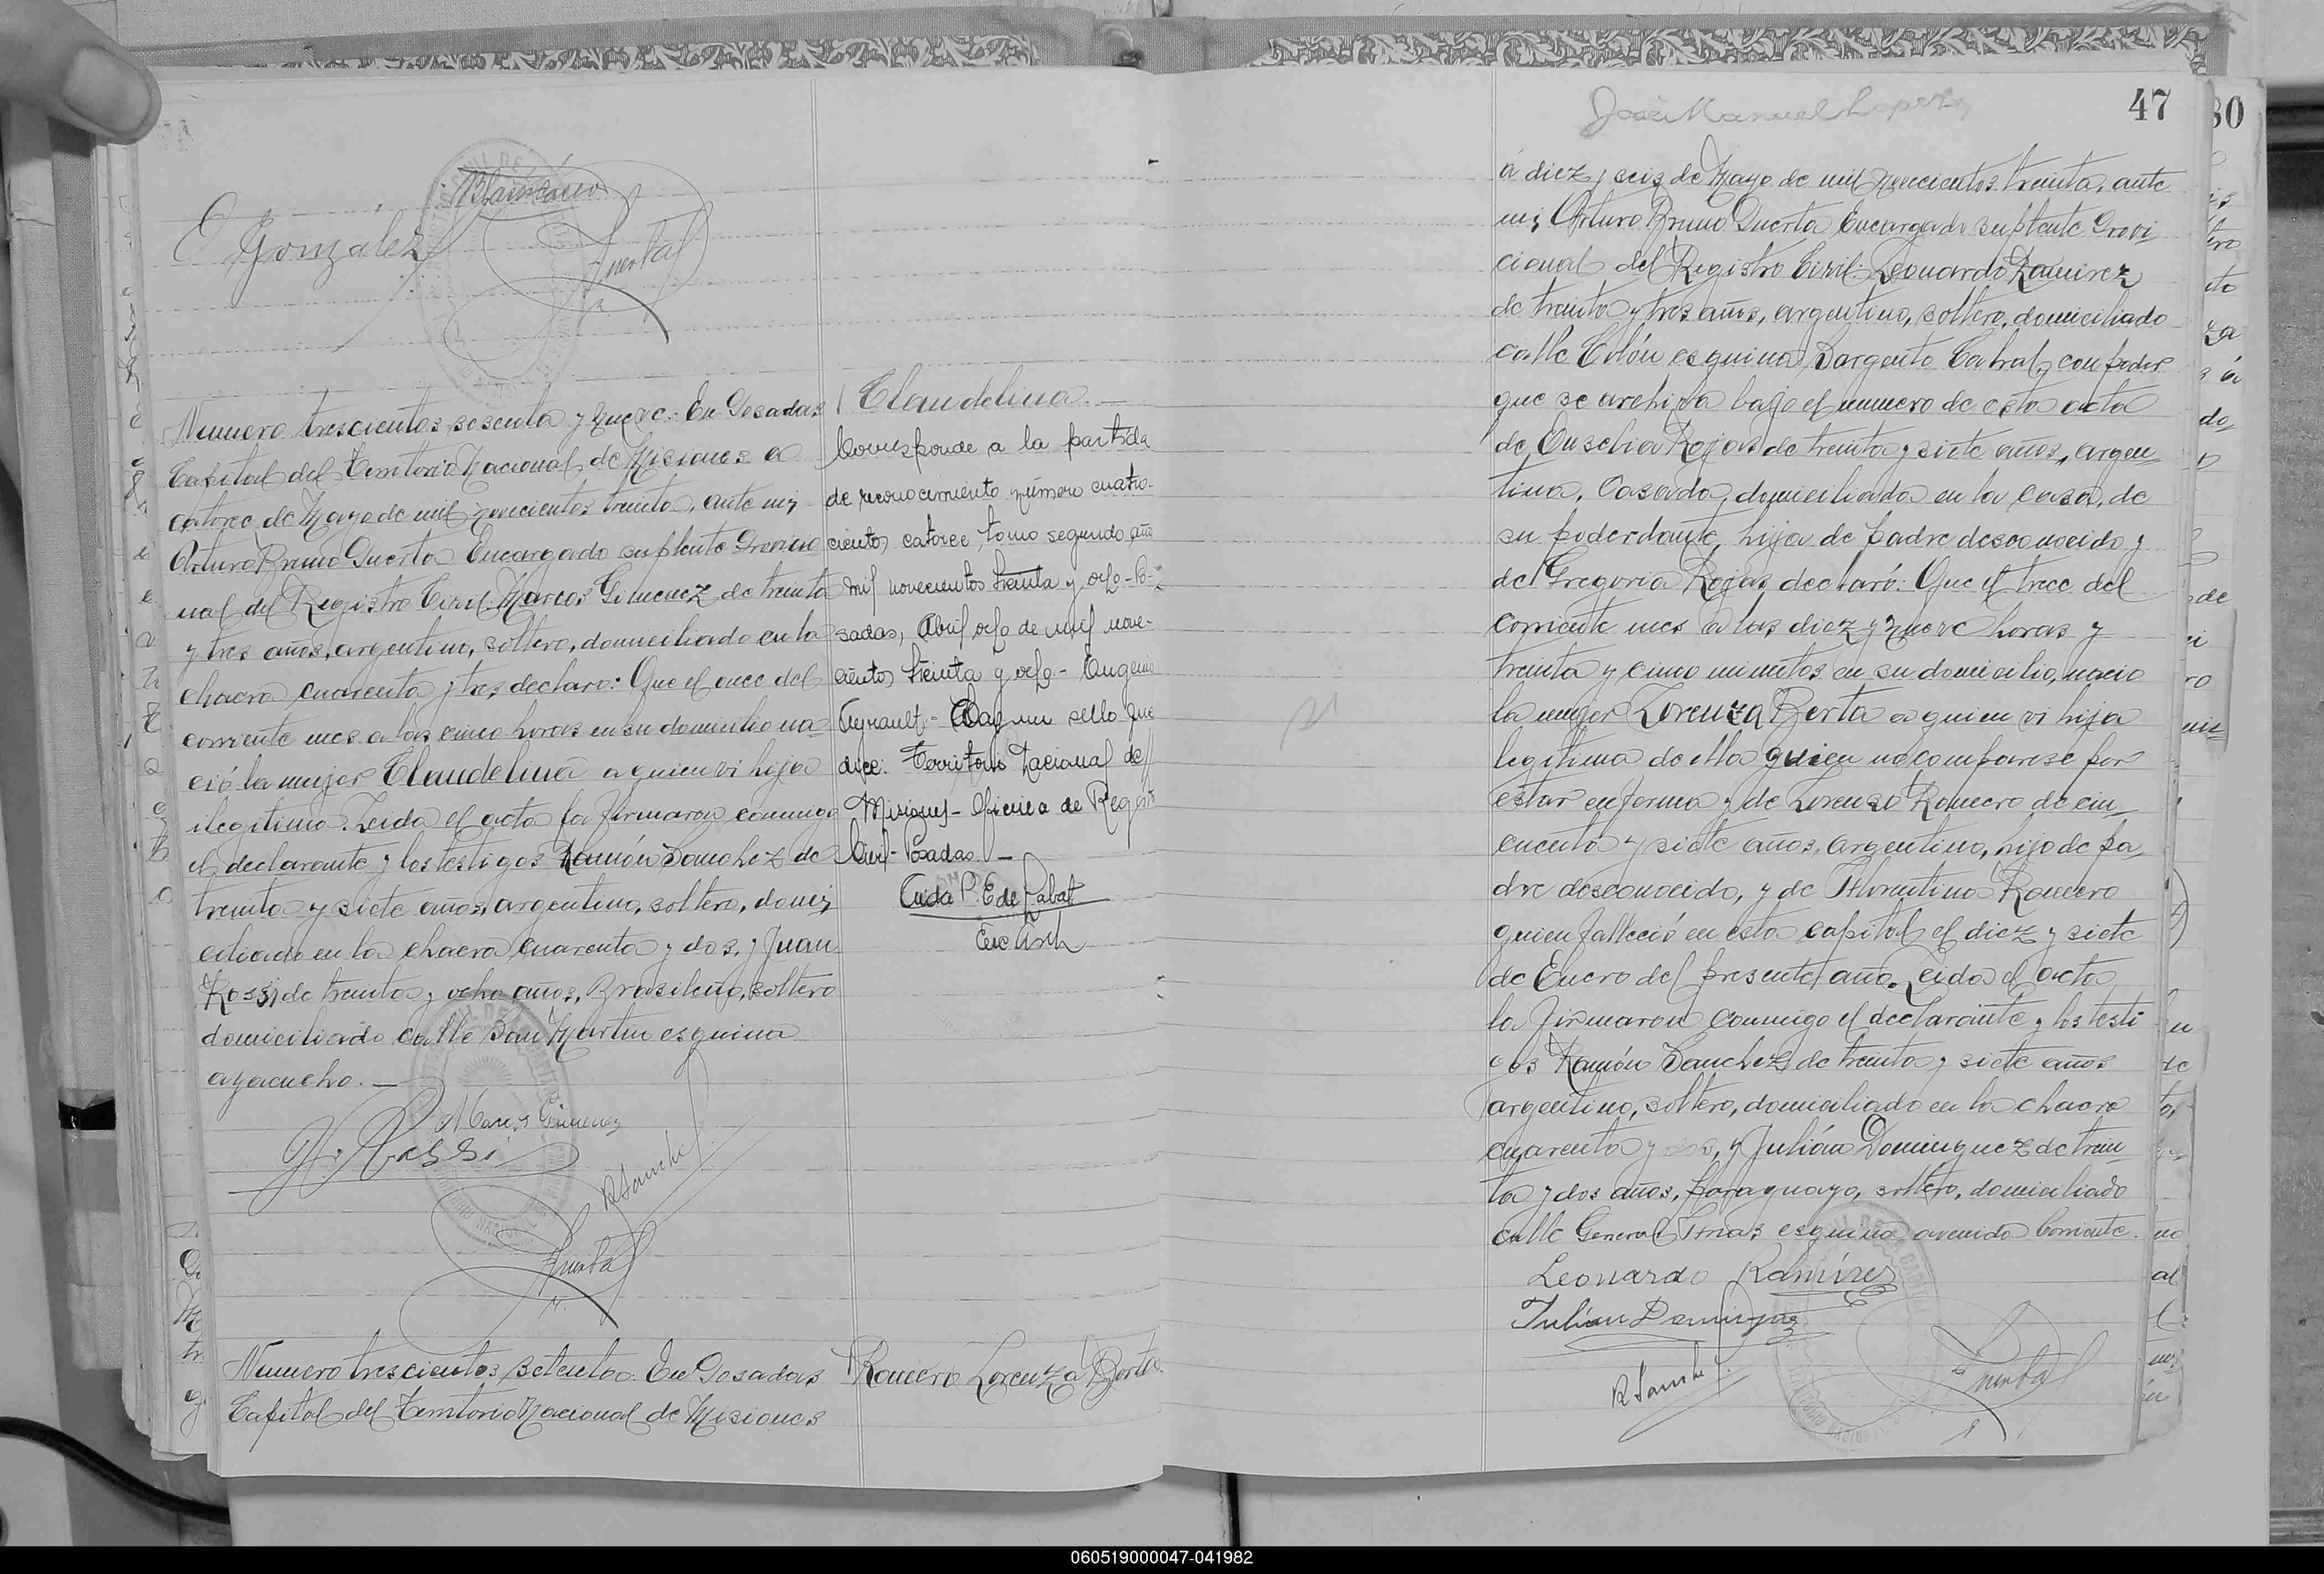 E Gonzalez
Huerta
Numero trescientos sesenta y nueve: En Posadas
Capital del Territorio Nacional de Misiones a
catorce de Mayo de mil novecientos treinta, ante mi
Arturo Bruno Huerta Encargado suplente Provicio
nal del Registro Civil: Marcos Gimenez de treinta
y tres años, argentino, soltero, domiciliado en la
chacra cuarenta y tres declaro: Que el once del
corriente mes a las cinco horas en su domicilio na-
ció la mujer Claudelina a quien vi hija
ilegitima. Leida el acta la firmaron conmigo
el declarante y los testigos Ramón Sanchez de
treinta y siete años, argentino, soltero, domi
ciliado en la chacra cuarenta y dos, y Juan
Rossi, de treinta y ocho años, Brasileño, soltero
domiciliado calle San Martin esquina
ayacucho. —
Marcos Gimenez
J. Rossi
R Sanchez
Huerta
Claudelina. —
Corresponde a la partida
de reconocimiento número cuatro-
cientos catorce, tomo segundo, año
mil novecientos treinta y ocho - Po-
sadas, Abril ocho de mil nove-
cientos treinta y ocho - Eugenio
Hay un sello que
dice: Territorio Nacional de
Misiones - Oficina de Registro
Civil - Posadas. —
Numero trescientos setenta: En Posadas
Capital del Territorio Nacional de Misiones
Romero Lorenza Berta.
José Manuel Lopez
47
30
á diez y seis de Mayo de mil novecientos treinta, ante
mi, Arturo Bruno Huerta Encargado suplente Provi
cional del Registro Civil: Leonardo Ramirez
de treinta y tres años, argentino, soltero, domiciliado
calle Colón esquina Sargento Cabral, con poder
que se archiva bajo el numero de esta acta
de Eusebia Rojas de treinta y siete años, argen-
tina, Casada, domiciliada en la casa, de
su poderdante, hija de padre desconocido y
de Gregoria Rojas declaró: Que el trece del
corriente mes a las diez y nueve horas y
treinta y cinco minutos en su domicilio, nacio
la mujer Lorenza Berta a quien vi hija
legitima de ella quien no comparese por
estar enferma y de Lorenzo Romero de cin-
cuenta y siete años, argentino, hijo de pa
dre desconocido, y de Florentina Romero
quien falleció en esta capital el diez y siete
de Enero del presente año. Leida el acta
la firmaron conmigo el declarante y los testi
gos Ramón Sanchez de treinta y siete años
argentino, soltero, domiciliado en la chacra
cuarenta y dos, y Julián Dominguez de trein-
ta y dos años, paraguayo, soltero, domiciliado
calle General Frias esquina avenida Corriente.
Leonardo Ramírez
Julián Dominguez
R Sanchez
Huerta
060519000047-041982